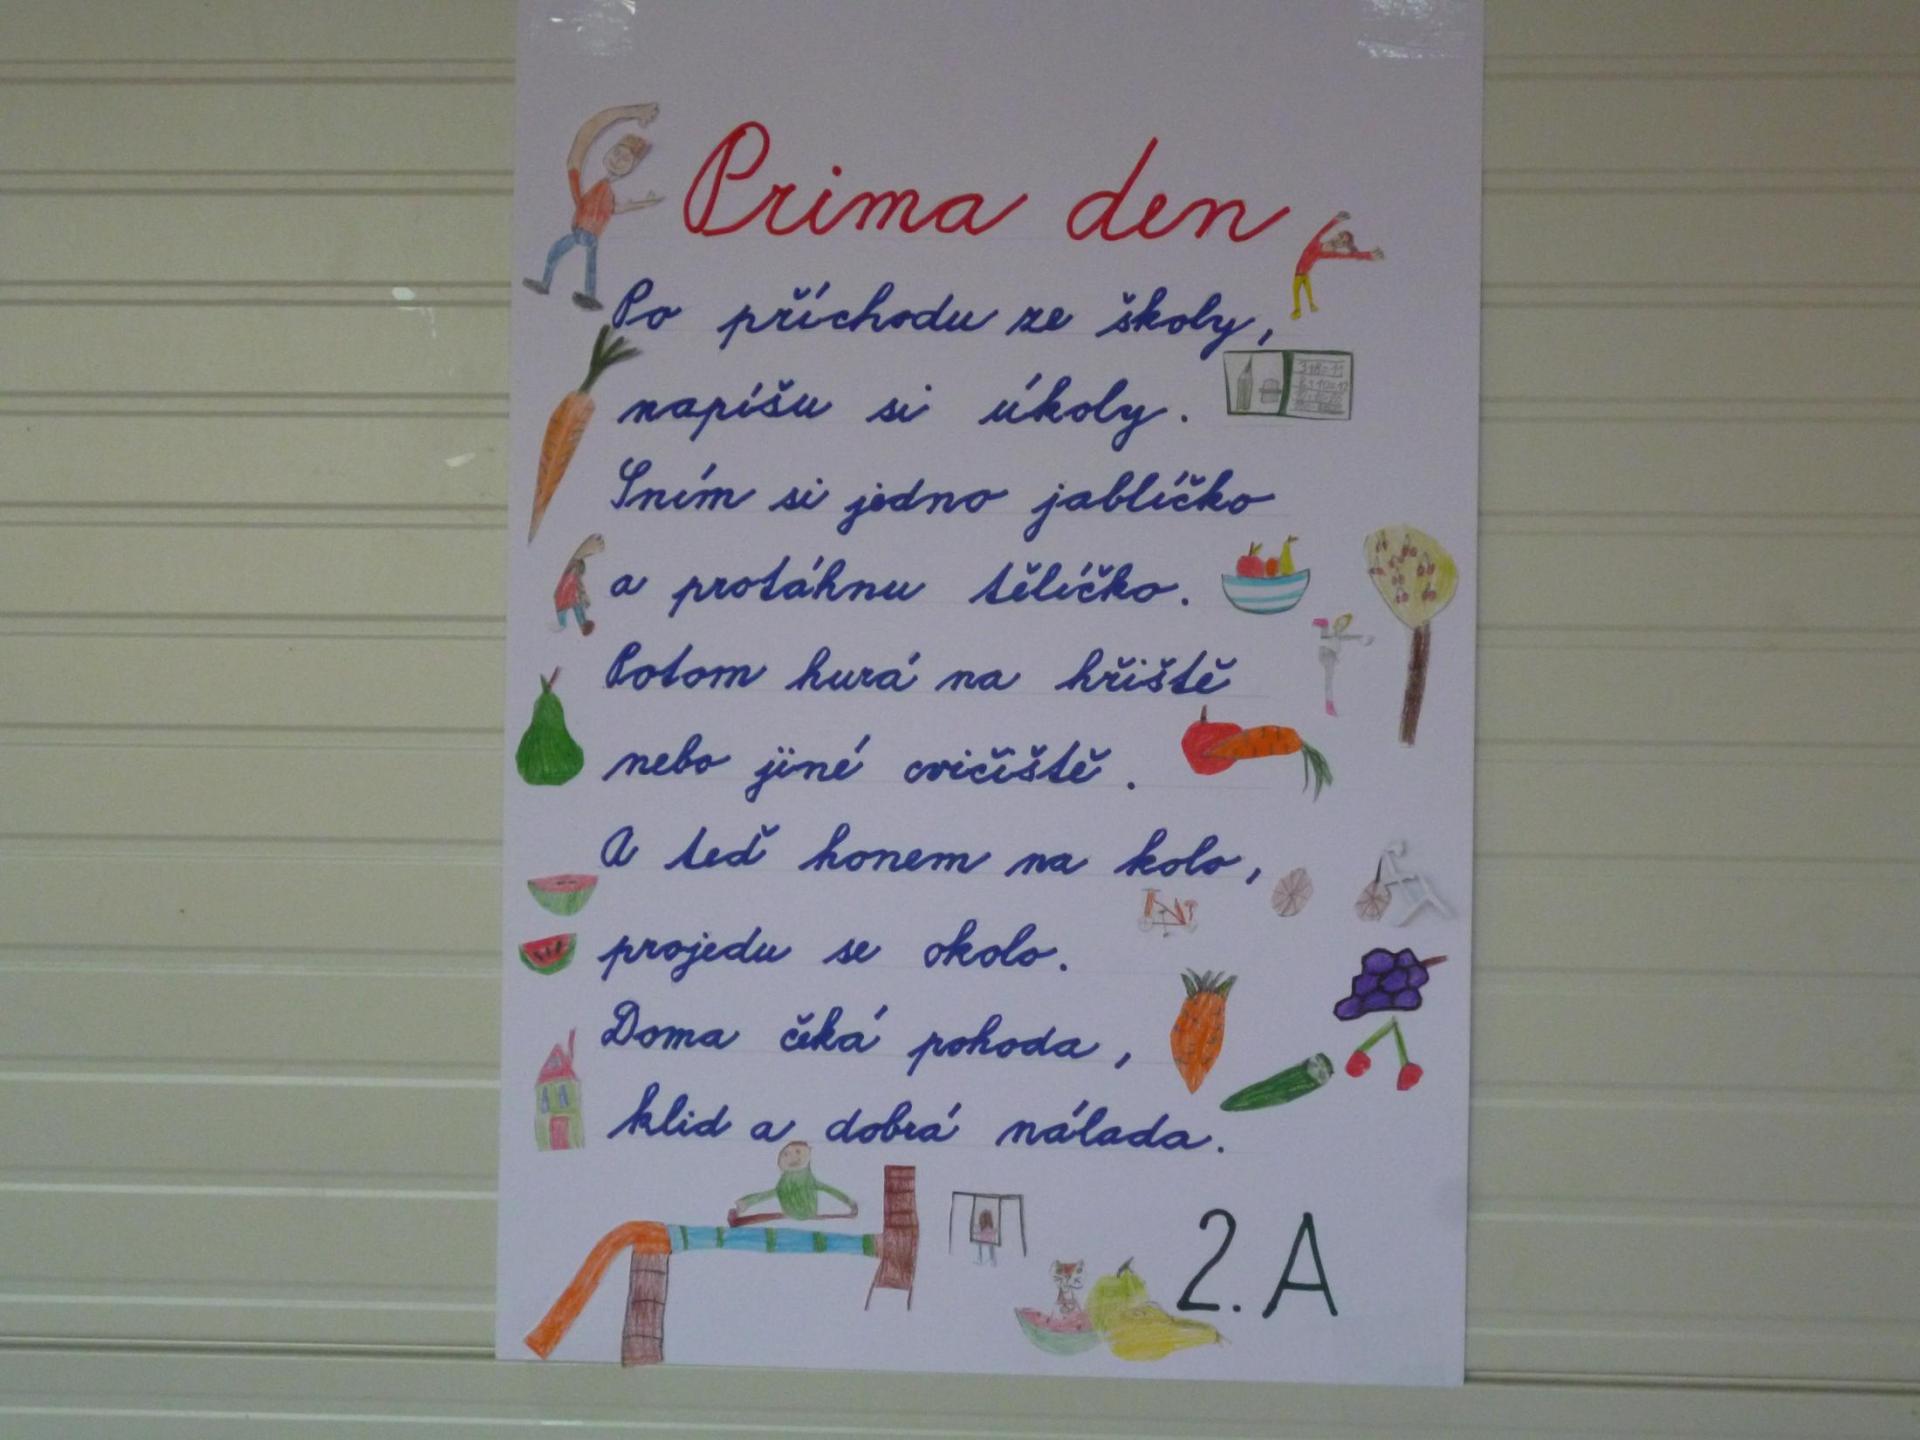 Prima den
Po příchodu ze školy,
napíšu si úkoly.
Sním si jedno jablíčko
a protáhnu tělíčko.
Potom hurá na hřiště
nebo jiné cvičiště.
A teď honem na kolo,
projedu se okolo.
Doma čeká pohoda,
klid a dobrá nálada.
2. A